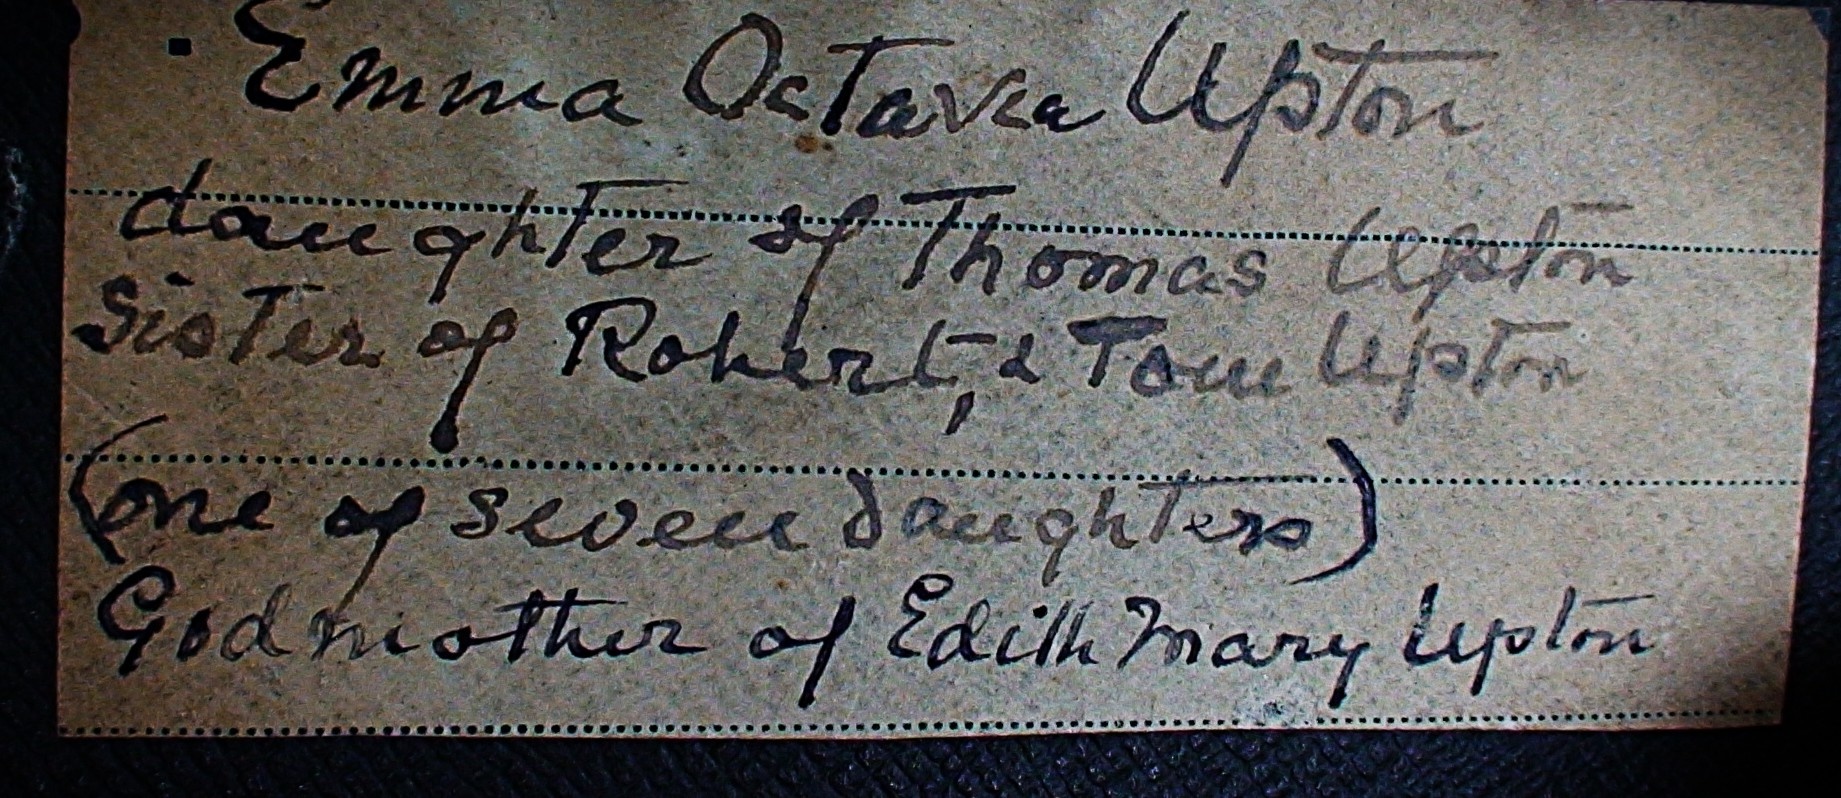 Emma Octavia Upton
daughter of Thomas Upton
Sister of Robert, & Tom Upton
(one of seven daughters)
Godmother of Edith Mary Upton